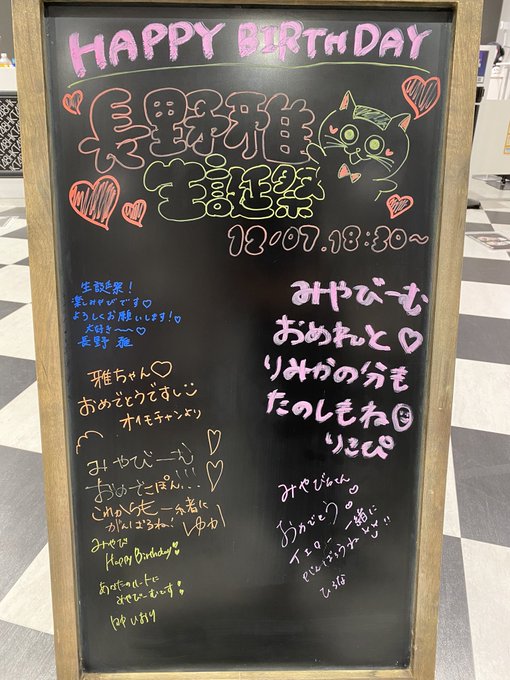 HAPPY BIRTHDAY
長野雅
生誕祭
12.07.18:30~
生誕祭!
楽しみやびです♡
よろしくお願いします!♡
大好き〜〜♡
長野 雅
雅ちゃん♡
おめでとうですし
オイモチャンより
みやびーむ
おめでこぽん!!!
これからも一緒に
がんばろね! ゆゆ
みやび
Happy Birthday!
あなたのハートに
みやびーむです!
みやびーむ
おめれと♡
りみかの分も
たのしもね
りこぴ
みやびちゃん
おめでとう!
イエロー 一緒に
がんばろうね
ひるな